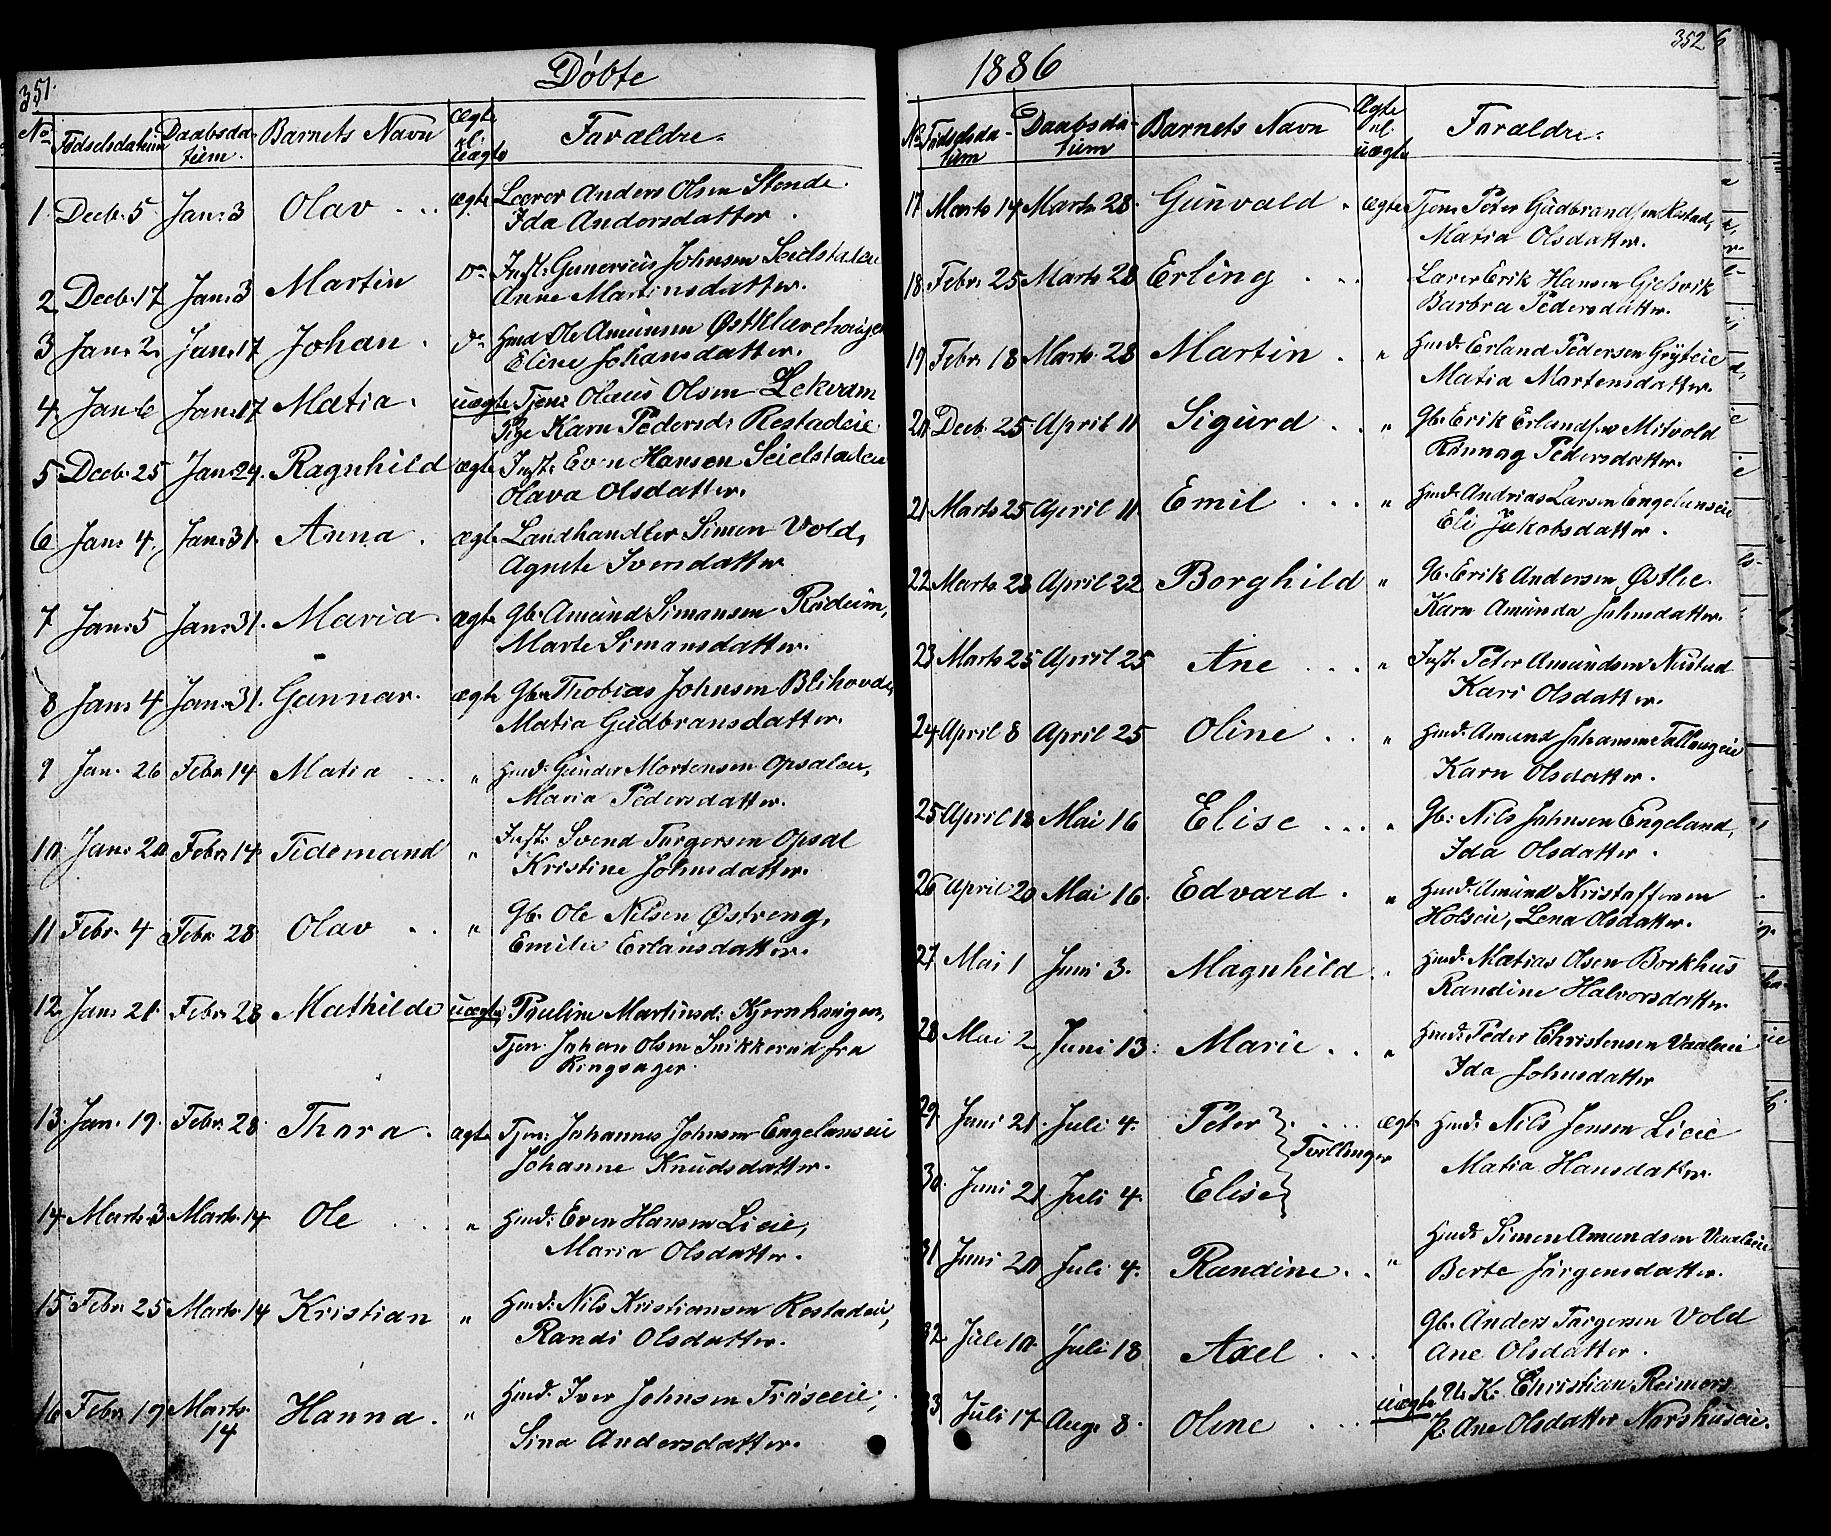 351.
Døbte
No Fødselsdatum Daabsdatum. Barnets Navn Ægte el. Uægte Forældre.
1. Decb. 5 Jan: 3 Olav ægte Lærer Anders Olsen Stende.
Ida Andersdatter.
2 Decb. 17 Jan: 3 Martin Do Inst: Gunerius Johnsen Seielstaden
Anne Martinsdatter.
3 Jan: 2, Jan: 17 Johan. Do Hmd Ole Amunsen Østklævehaugen
Eline Johansdatter.
4. Jan: 6 Jan: 17 Matia. uægte Tjen: Olaus Olsen Lekvam
Pige Karn Pedersd: Rostadeie
5 Decb. 25 Jan: 24. Ragnhild ægte Inst: Even Hansen Seielstaden
Olava Olsdatter.
6 Jan: 4. Jan: 31. Anna. ægte Landhandler Simen Vold,
Agnete Iversdatter
7 Jan: 5 Jan: 31. Maria. ægte Gb. Amund Simansen Rødeim,
Marte Simansdatter.
8 Jan: 4 Jan: 31. Gunnar. ægte Gb. Thobias Johnsen Blihovde,
Matia Gudbransdatter.
9 Jan. 26 Febr 14 Matia " Hmd: Gunder Mortensen Opsaleie,
Maria Pedersdatter.
10. Jan: 20 Febr. 14 Tidemand " Inst: Svend Torgersen Opsal
Kristine Johnsdatter.
11 Febr. 4 Febr 28 Olav " Gb. Ole Nilsen Østreng,
Emilie Erlansdatter.
12. Jan: 21. Febr. 28 Mathilde uægte Pauline Martinsd: Kjernhaugen,
Tjen. Johan Olsen Snikkerud fra
Ringsager.
13. Jan. 19. Febr. 28. Thora. ægte Tjen: Johannes Johnsen Engelanseie
Johanne Knudsdatter.
14. Marts. 3 Marts. 14 Ole " Hmd: Even Hansen Lieie,
Maria Olsdatter.
15. Febr. 25 Marts. 14 Kristian " Hmd: Nils Kristiansen Rostadeie,
Randi Olsdatter.
16 Febr. 19 Marts. 14 Hanna. " Hmd. Iver Johnsen Frøseeie,
Sina Andersdatter.
1886
352
No Fødselsdatum Daabsdatum Barnets Navn Ægte el. uægte Forældre.
17 Marts 14 Marts. 28. Gunvald. ægte Tjen: Peter Gudbrandsen Rostad,
Matia Olsdatter.
18 Febr. 25 Marts 28 Erling Lærer Erik Hansen Gjelsvik
Barbra Pedersdatter.
19 Febr. 18 Marts. 28 Martin " Hmd: Erland Pedersen Gryteie
Matia Martensdatter.
20 Decb. 25 April 11 Sigurd " Gb. Erik Erlandsen Mitvold
Rønnag Pedersdatter.
21. Marts 25 April 11 Emil " Hmd: Andrias Larsen Engelunseie
Eli Jakobsdatter.
22 Marts 28 April 22 Borghild " Gb. Erik Andersen Østlie.
Karn Amunda Johnsdatter.
23 Marts 25 April 25 Ane " Inst: Peter Amundsen Nustad
Kari Olsdatter.
24 April 8 April 25 Oline " Hmd: Amund Johansen Tallaugeie
Karn Olsdatter.
25 April 18 Mai 16 Elise " Gb: Nils Johnsen Engeland,
Ida Olsdatter.
26 April 20 Mai 16. Edvard. " Hmd: Amund Kristoffersen
Holseie, Lena Olsdatter.
27. Mai 1 Juni 3. Magnhild " Hmd. Matias Olsen Borkhus
Randine Halvorsdatter
28 Mai 2 Juni 13. Marie " Hmd: Peder Christensen Vaaleeie
Ida Johnsdatter
29. Juni 21. Juli 4. Peter ægte Hmd: Nils Jensen Lieie
Tvillinger
Matia Hansdatter.
30. Juni 21. Juli 4. Elise
31 Juni 20 Juli 4. Randine. " Hmd. Simen Amundsen Vaaleeie
Berte Jørgensdatter.
32 Juli 10 Juli 18 Axel Gb. Anders Torgersen Vold
Ane Olsdatter.
33 Juli 17 Aug. 8. Oline uægte U. K. Christian Reimers
P. Ane Olsdatter Norshuseie.